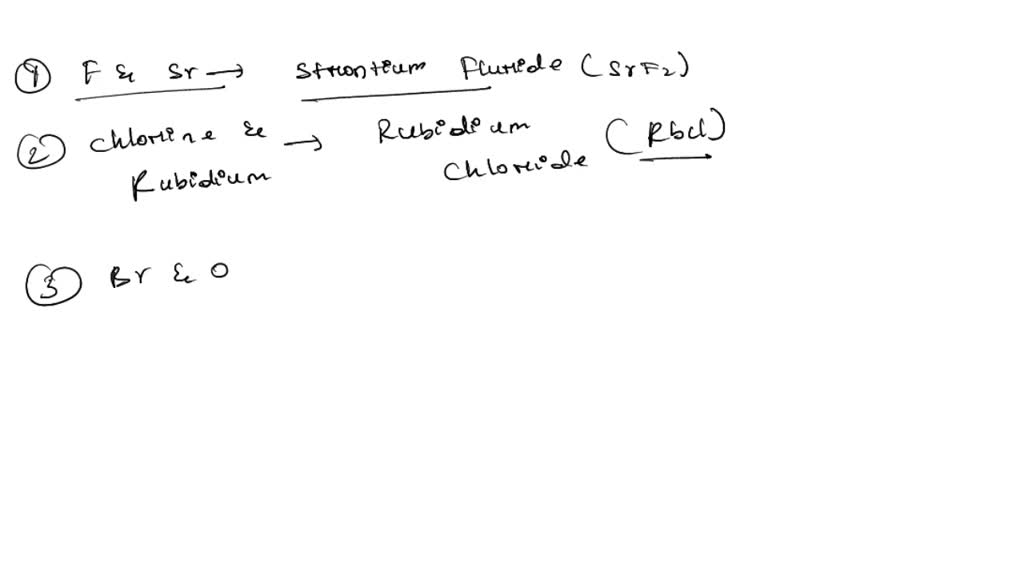 ① F & Sr → Strontium Fluride (SrF2)
② Chlorine & → Rubidium (RbCl)
Rubidium Chloride
③ Br & O